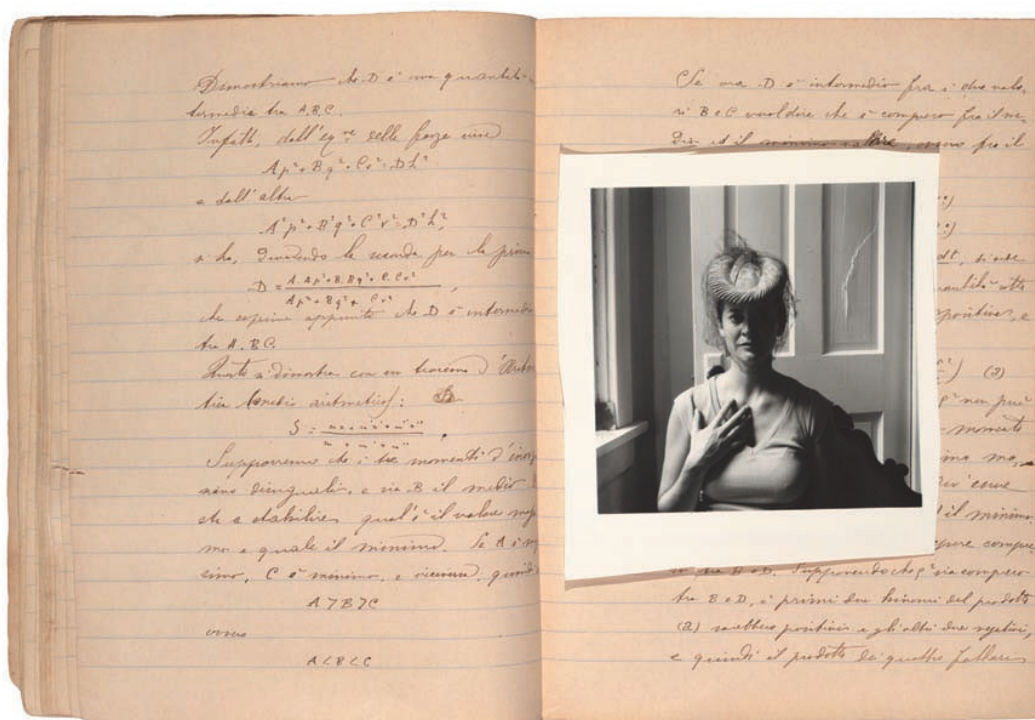 Dimostriamo che D è una quantità
termedia tra A.B.C.
Infatti, dall'eq.ne delle forze vive
Ap² + Bq² + Cr² = Dh²
e dall'altra
A²p² + B²q² + C²r² = D²h²,
si ha, dividendo la seconda per la prima
D = A.Ap² + B.Bq² + C.Cr² / Ap² + Bq² + Cr²,
che esprime appunto che D è intermedia
tra A.BC.
si dimostra con un teorema d'
(medio aritmetico):
S =
Supporremo che i tre momenti d'
siano disuguali, e sia B il medio
sta a stabilire qual'è il valore
mo e quale il minimo. Se A è
simo, C è minimo, e viceversa, quindi
A > B > C
ovvero
A < B < C
Se ora D è intermedio fra i due valo-
ri B e C vuol dire che è compreso fra il me-
dio ed il minimo valore, ovvero fra il
dt, si vede
quantità
positive, e
(2)
non può
momento
ma mo-
essere
il minimo
compre
so tra B e D. Supponendo che ρ² sia compreso
tra B e D, i primi due binomi del prodotto
(2) sarebbero positivi e gli altri due negativi,
e quindi il prodotto dei quattro fattori